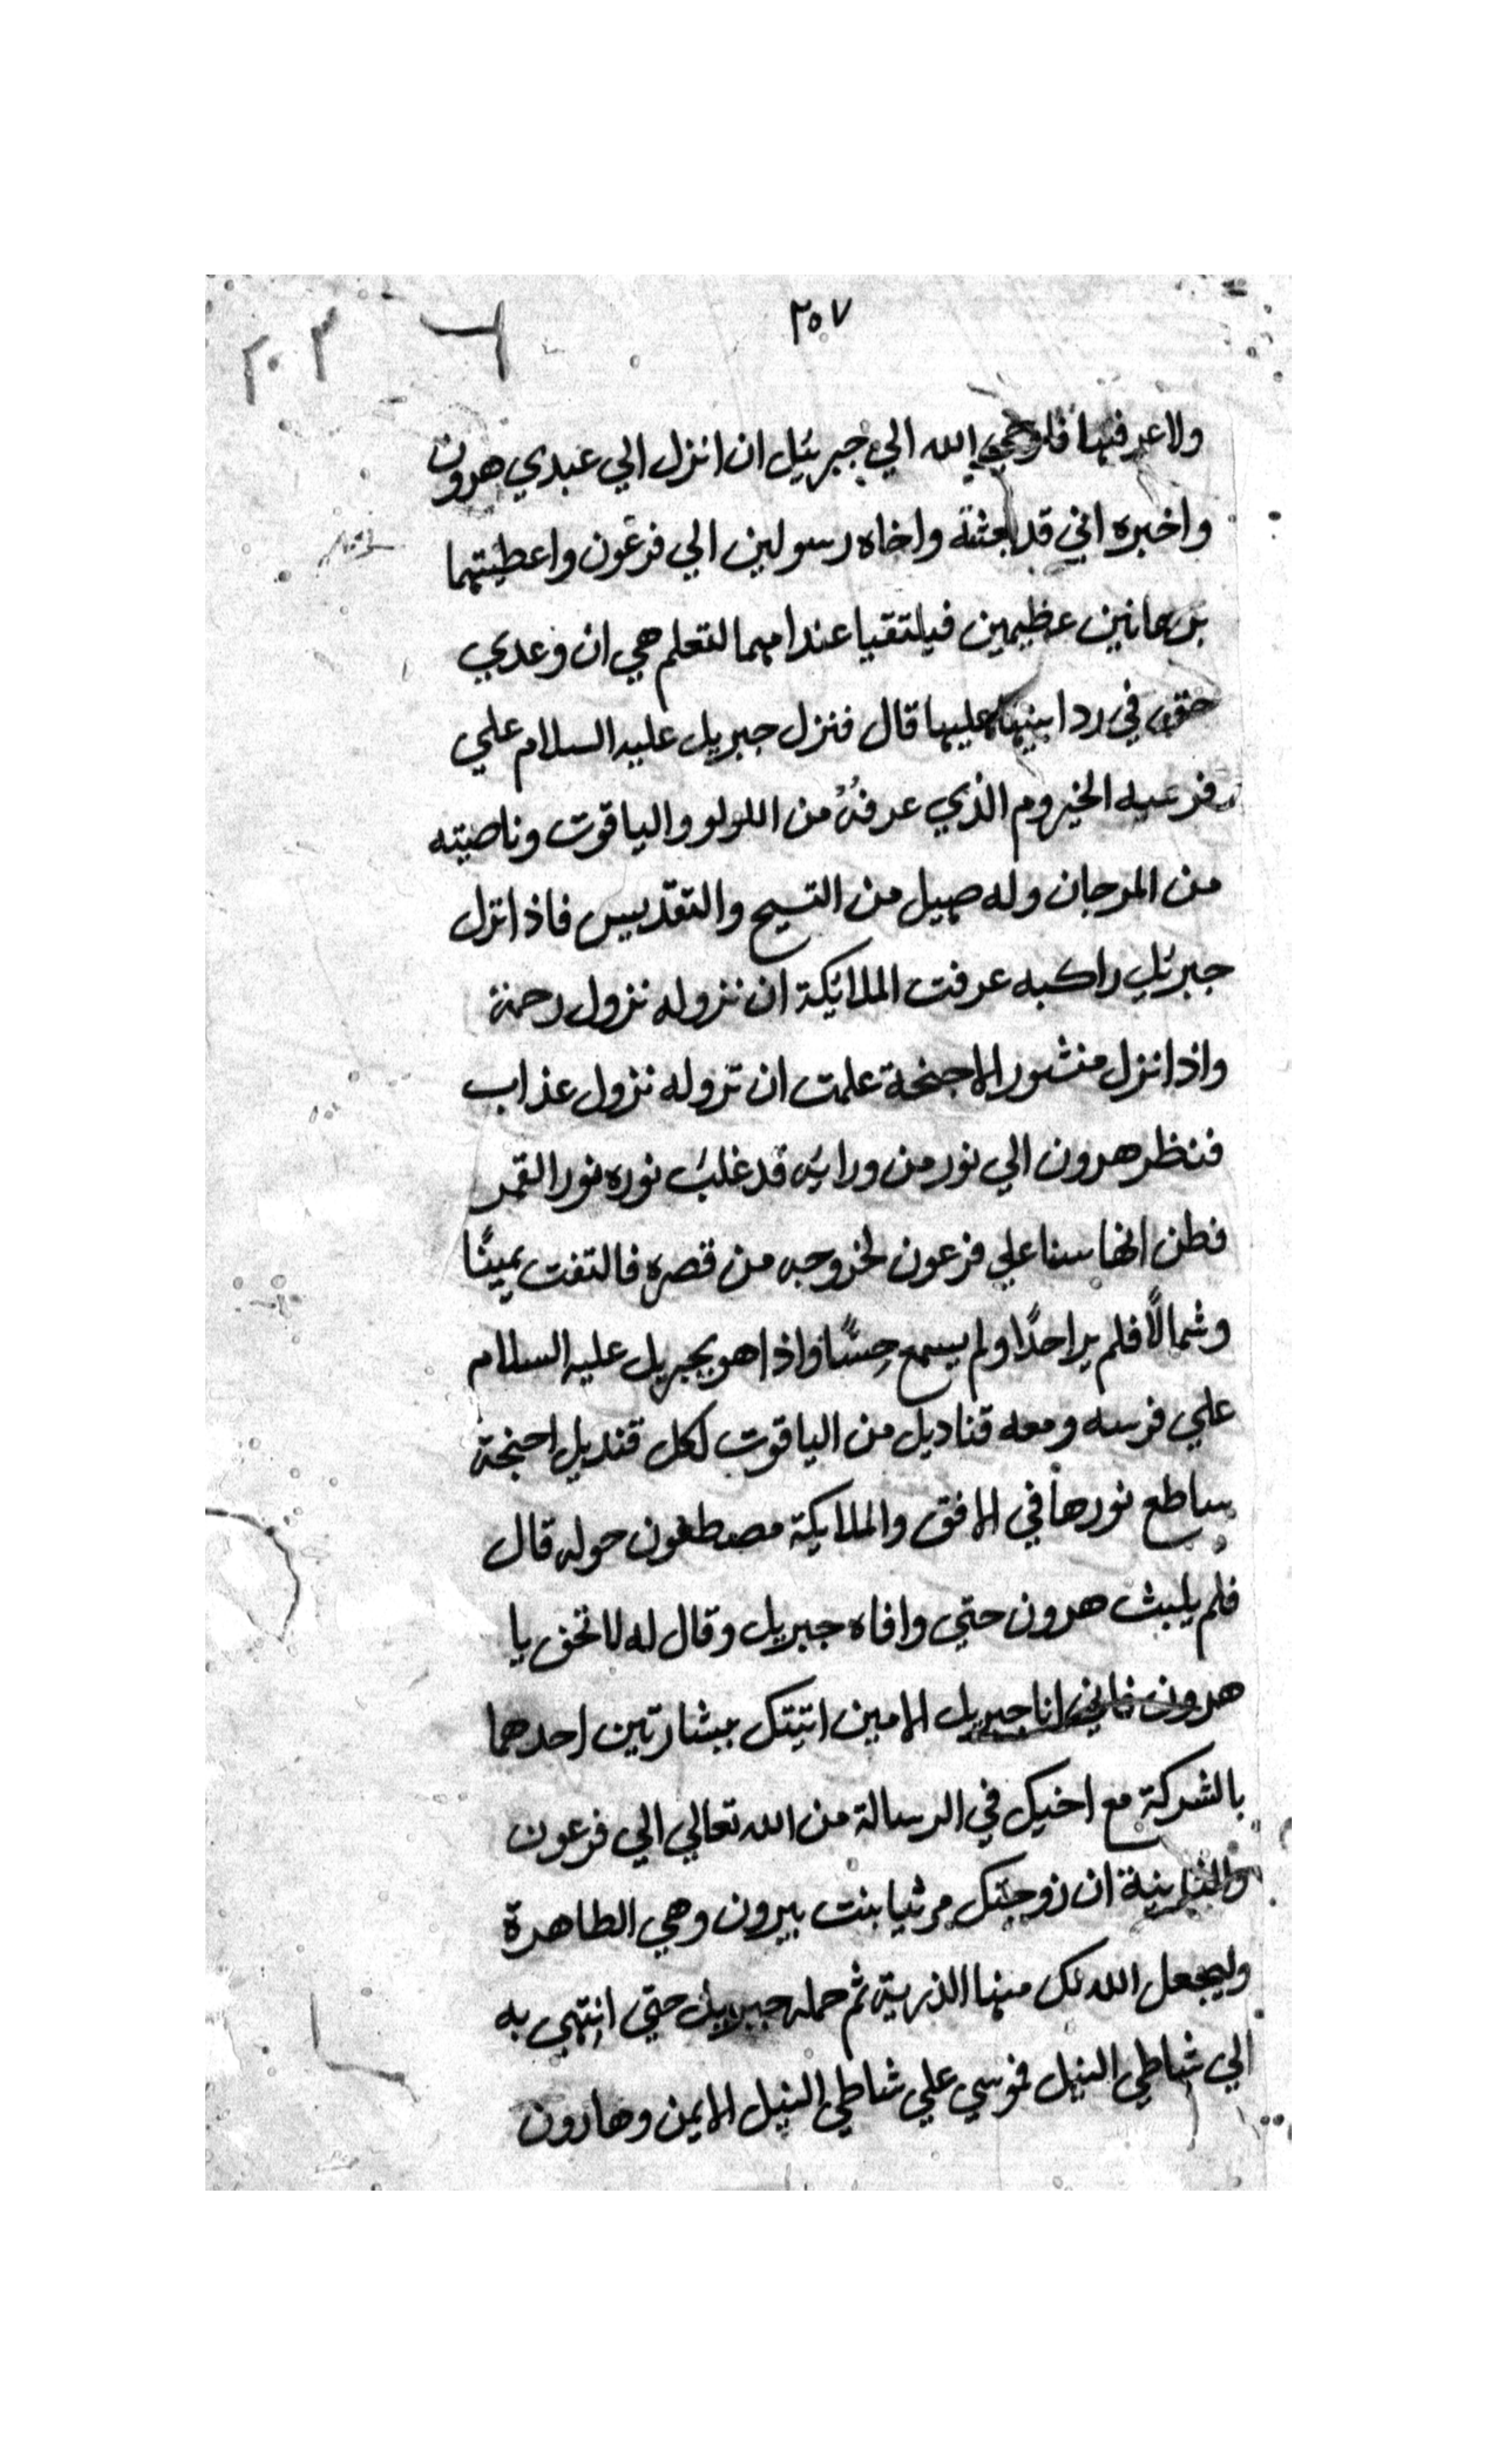 ٢٥٧
٢٠٢
ولا عرفها فاوحي الله الي جبرئيل ان انزل الي عبدي هرون
واخبره اني قد بعثته واخاه رسولين الي فرعون واعطيتهما
برهانين عظيمين فيلتقيا عند امهما لتعلم هي ان وعدي
حق في رد ابنيها عليها قال فنزل جبريل عليه السلام علي
فرسه الخيروم الذي عرفهُ من اللولو والياقوت وناصيته
من المرجان وله صهيل من التسبيح والتقديس فاذا نزل
جبرئيل راكبه عرفت الملائكة ان نزوله نزول رحمة
واذا نزل منشور الاجنحة علمت ان نزوله نزول عذاب
فنظر هرون الي نور من ورايه قد غلب نوره نور القمر
فظن انها سنا علي فرعون لخروجه من قصره فالتفت يمينًا
وشمالًا فلم ير احدًا ولم يسمع حِسًا واذا هو بجبريل عليه السلام
علي فرسه ومعه قناديل من الياقوت لكل قنديل اجنحة
ساطع نورها في الافق والملايكة مصطفون حوله قال
فلم يلبث هرون حتي وافاه جبريل وقال له لا تخف يا
هرون فاني انا جبريل الامين اتيتك ببشارتين احدهما
بالشركة مع اخيك في الرسالة من الله تعالي الي فرعون
والثانية ان زوجتك مرثيا بنت بيرون وهي الطاهرة
وليجعل الله لك منها الذرية ثم حمله جبريل حتي انتهي به
الي شاطي النيل فموسي علي شاطي النيل الايمن وهارون